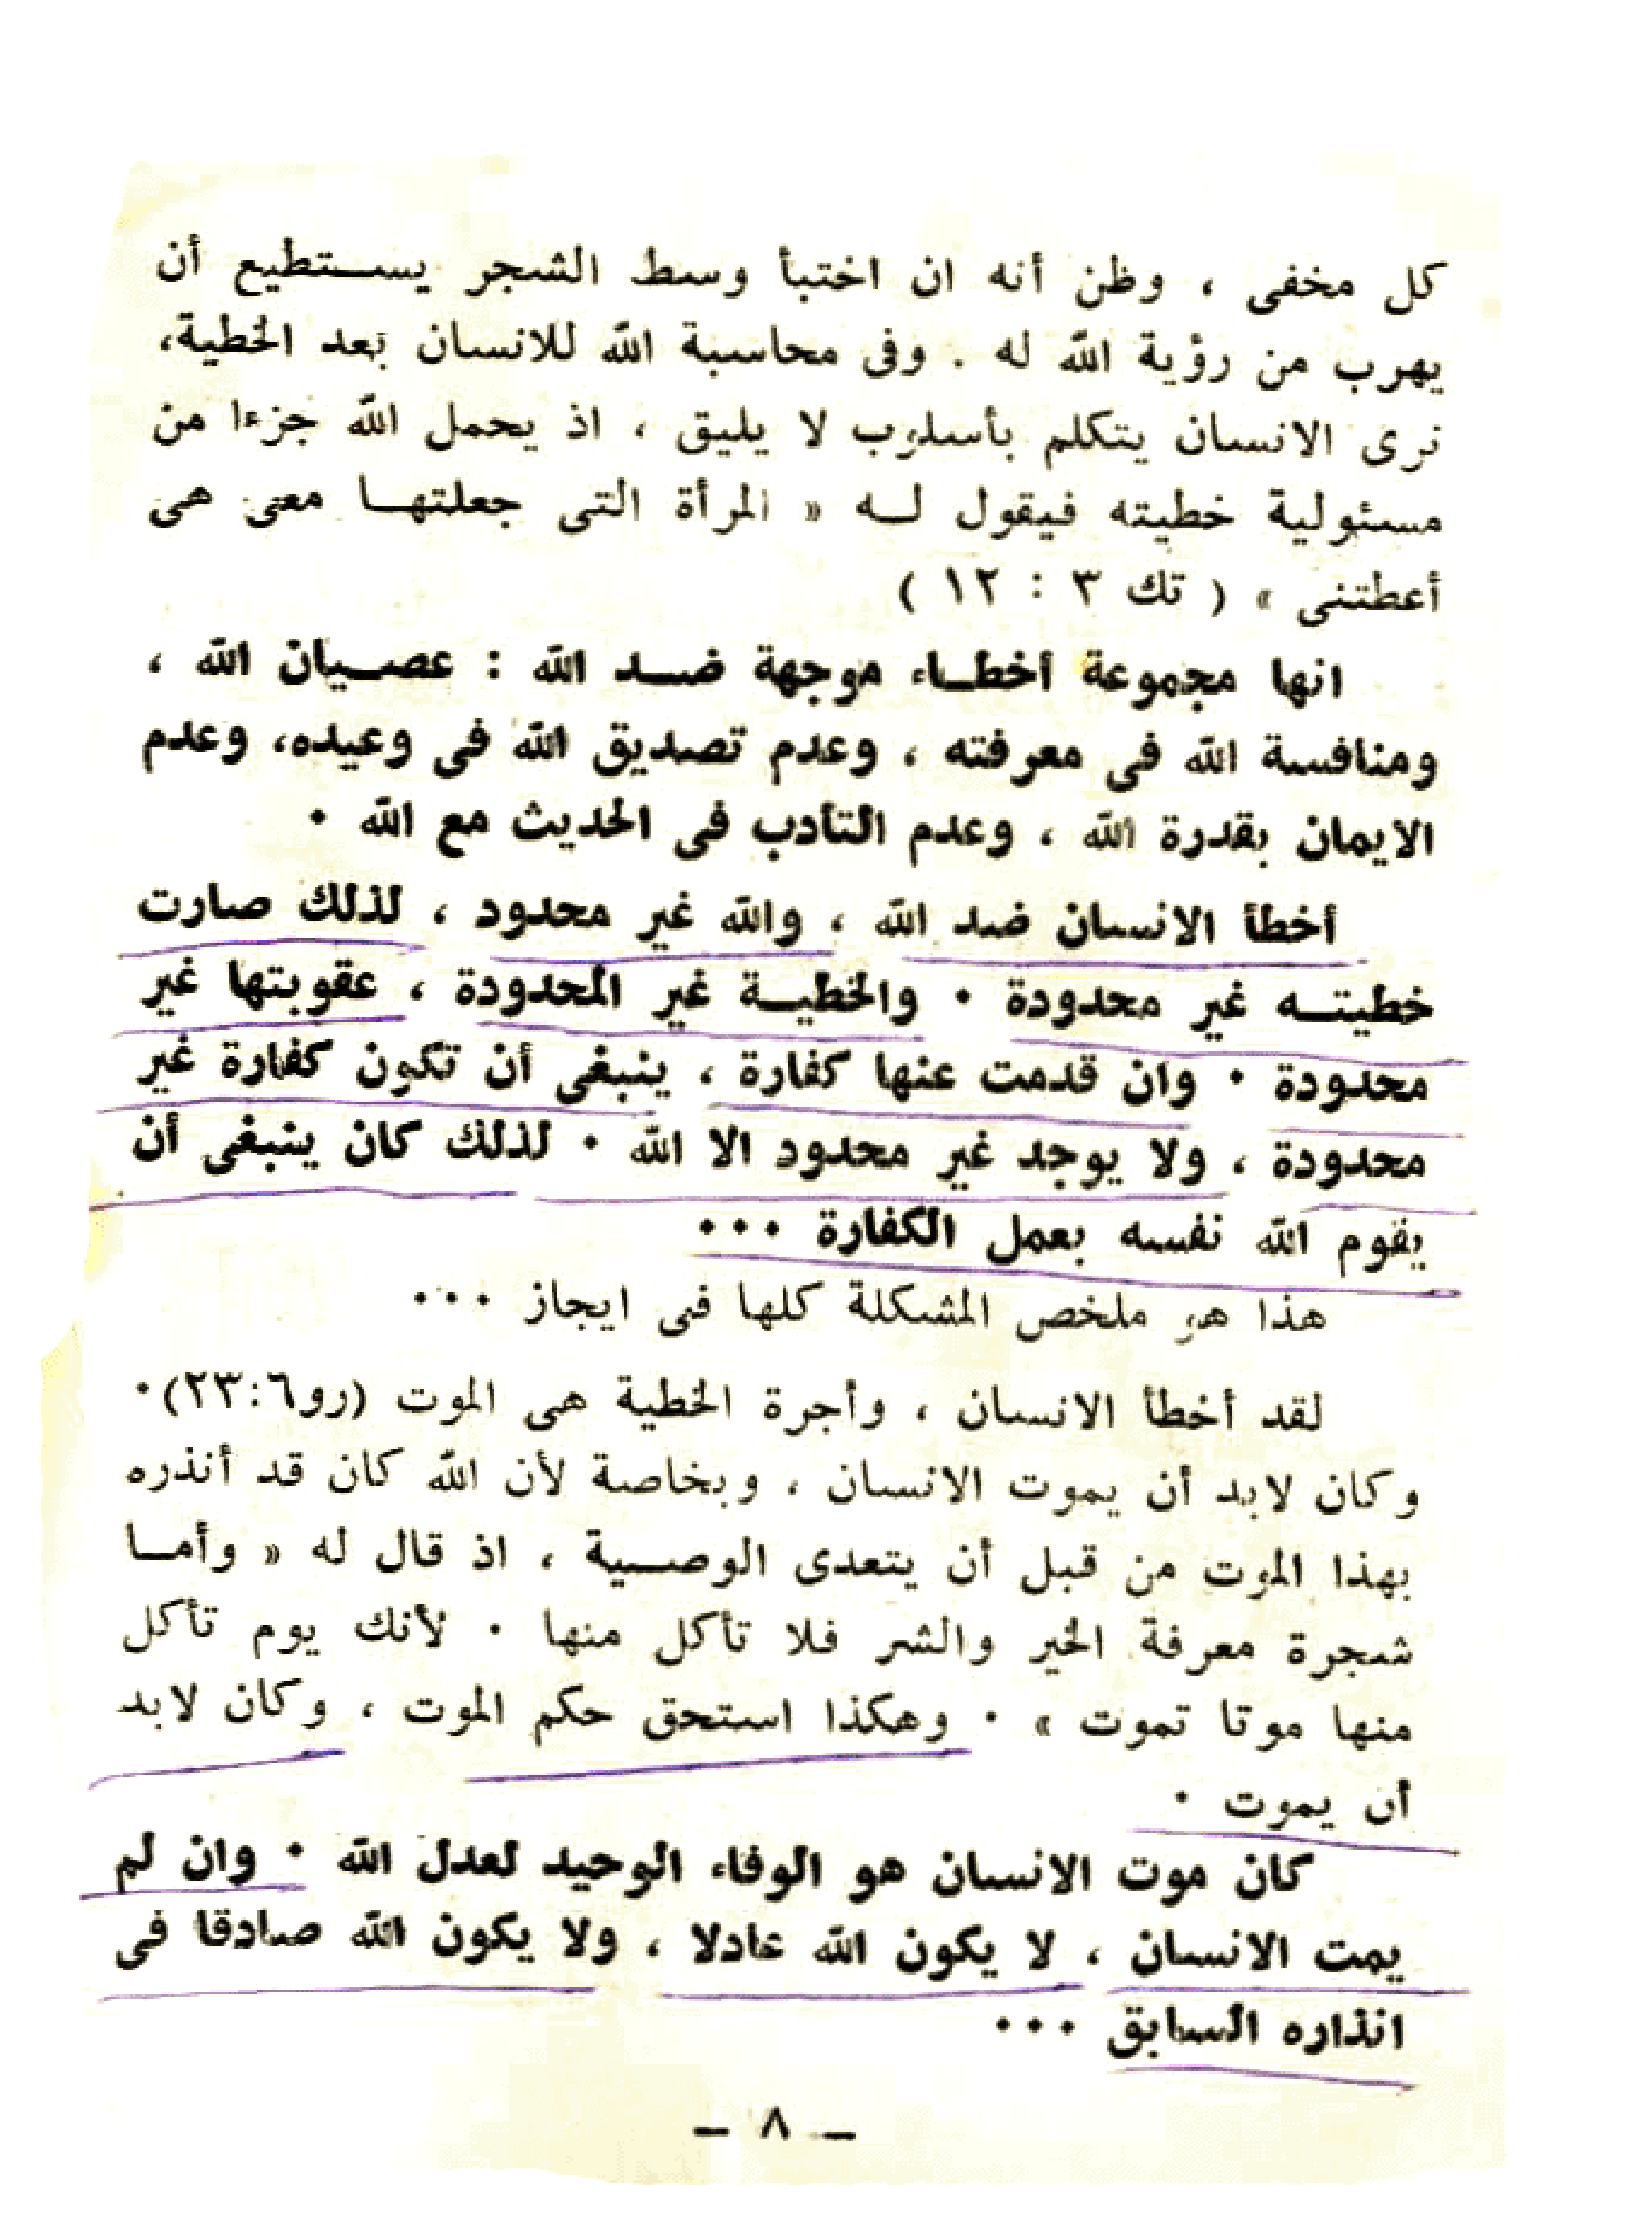 كل مخفى ، وظن أنه ان اختبأ وسط الشجر يستطيع أن
يهرب من رؤية الله له . وفى محاسبة الله للانسان بعد الخطية،
نرى الانسان يتكلم بأسلوب لا يليق ، اذ يحمل الله جزءا من
مسئولية خطيته فيقول له « المرأة التى جعلتها معى هى
أعطتنى » ( تك ٣ : ١٢ )
انها مجموعة أخطاء موجهة ضد الله : عصيان الله ،
ومنافسة الله فى معرفته ، وعدم تصديق الله فى وعيده، وعدم
الايمان بقدرة الله ، وعدم التأدب فى الحديث مع الله ٠
أخطأ الانسان ضد الله ، والله غير محدود ، لذلك صارت
خطيته غير محدودة ٠ والخطية غير المحدودة ، عقوبتها غير
محدودة ٠ وان قدمت عنها كفارة ، ينبغى أن تكون كفارة غير
محدودة ، ولا يوجد غير محدود الا الله ٠ لذلك كان ينبغى أن
يقوم الله نفسه بعمل الكفارة ٠٠٠
هذا هو ملخص المشكلة كلها فى ايجاز ٠٠٠
لقد أخطأ الانسان ، وأجرة الخطية هى الموت (رو٦:٢٣)٠
وكان لابد أن يموت الانسان ، وبخاصة لأن الله كان قد أنذره
بهذا الموت من قبل أن يتعدى الوصية ، اذ قال له « وأما
شجرة معرفة الخير والشر فلا تأكل منها ٠ لأنك يوم تأكل
منها موتا تموت » ٠ وهكذا استحق حكم الموت ، وكان لابد
أن يموت ٠
كان موت الانسان هو الوفاء الوحيد لعدل الله ٠ وان لم
يمت الانسان ، لا يكون الله عادلا ، ولا يكون الله صادقا فى
انذاره السابق ٠٠٠
ــ ٨ ــ